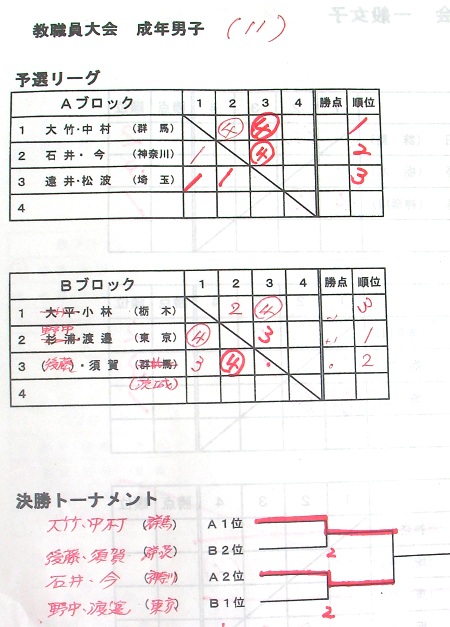 教職員大会 成年男子 (11)
予選リーグ
Aブロック 1 2 3 4 勝点 順位
1 大竹・中村 (群馬) ④ ④ 1
2 石井・今 (神奈川) 1 ④ 2
3 遠井・松波 (埼玉) 1 1 3
4
Bブロック 1 2 3 4 勝点 順位
1 大平・小林 (栃木) 2 ④ 3
野中
2 杉浦・渡邉 (東京) ④ 3 1
3 (後藤)・須賀 (群馬) 3 ④ 2
4 (茨城)
決勝トーナメント
大竹、中村 (群馬) A1位
後藤、須賀 B2位
2
石井・今 (神奈川) A2位
野中、渡邉 (東京) B1位
2